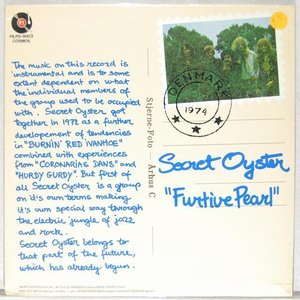 PILPS-9003
COSMOS
The music on this record is
instrumental and is to some
extent dependent on what
the individual members of
the group used to be occupied
with. Secret Oyster got
together in 1972 as a further
developement of tendencies
in "BURNIN' RED IVANHOE"
combined with experiences
from "CORONARIAS DANS" and
"HURDY GURDY". But first of
all Secret Oyster is a group
on it's own terms making
it's own special way through
the electric jungle of jazz
and rock.
Secret Oyster belongs to
that part of the future,
which has already begun.
Stjerne-Foto Århus C
DENMARK
1974
Secret Oyster
"Furtive Pearl"